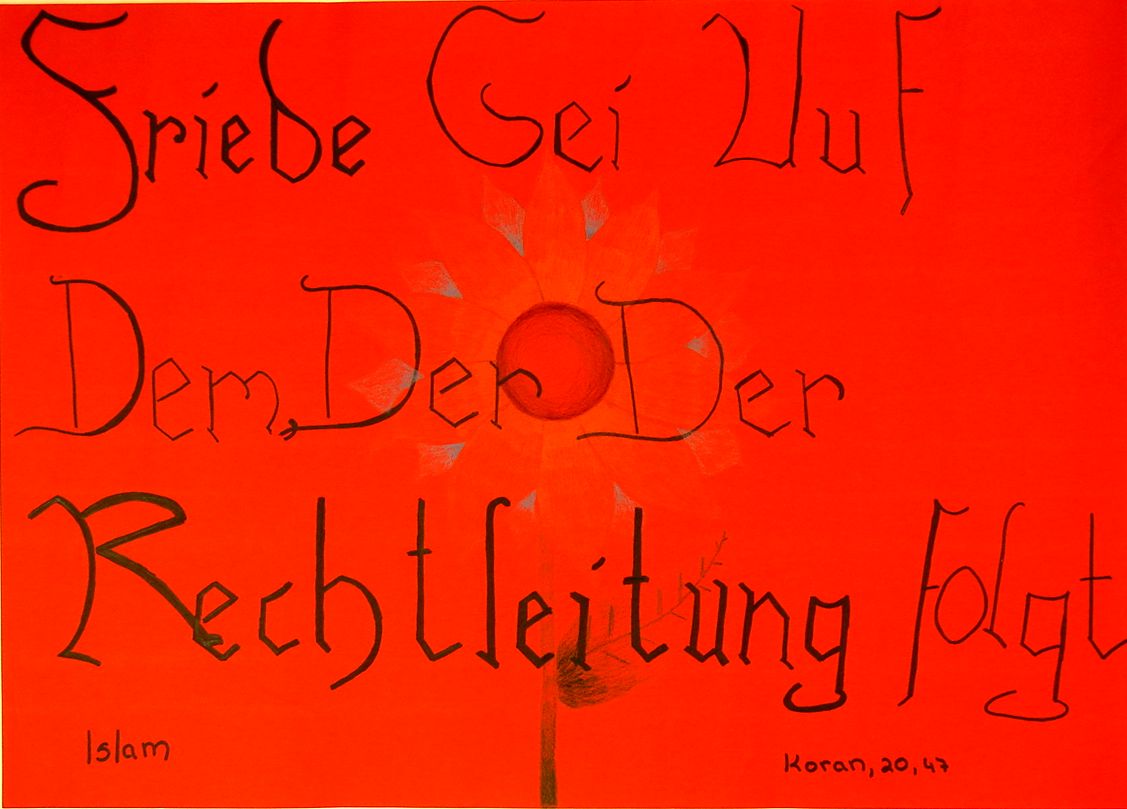 Friede Sei Auf
Dem, Der Der
Rechtleitung folgt
Islam
Koran, 20, 47